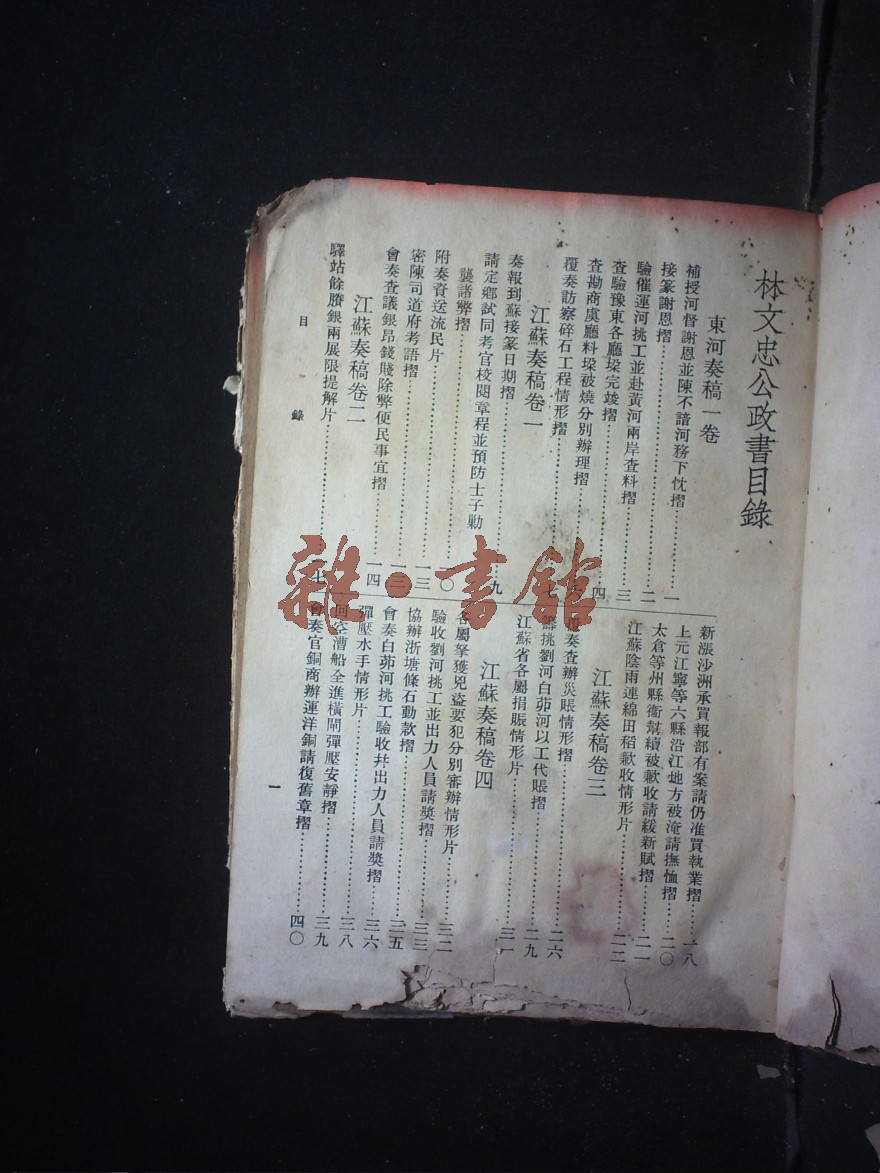 林文忠公政書目錄
東河奏稿一卷
補授河督謝恩並陳不諳河務下忱摺…………一
接篆謝恩摺…………二
驗催運河挑工並赴黃河兩岸查料摺…………三
查驗豫東各廳垛完竣摺…………四
查勘商虞廳料垛被燒分別辦理摺
覆奏訪察碎石工程情形摺…………七
江蘇奏稿卷一
奏報到蘇接篆日期摺…………九
請定鄉試同考官校閱章程並預防士子勦
襲諸弊摺
附奏資送流民片
密陳司道府考語摺…………一三
會奏查議銀昂錢賤除弊便民事宜摺…………一四
江蘇奏稿卷二
驛站餘賸銀兩展限提解片
新漲沙洲承買報部有案請仍准買執業摺…………一八
上元江寧等六縣沿江地方被淹請撫恤摺…………二〇
太倉等州縣衞幫續被歉收請緩新賦摺…………二一
江蘇陰雨連綿田稻歉收情形片…………二二
江蘇奏稿卷三
奏查辦災賬情形摺…………二六
籌挑劉河白茆河以工代賬摺…………二九
江蘇省各屬捐賬情形片…………三一
江蘇奏稿卷四
各屬拏獲兇盜要犯分別審辦情形片…………三二
驗收劉河挑工並出力人員請獎摺…………三三
協辦浙塘條石動款摺…………三五
會奏白茆河挑工驗收并出力人員請獎摺…………三六
彈壓水手情形片…………三八
回空漕船全進橫閘彈壓安靜摺…………三九
會奏官銅商辦運洋銅請復舊章摺…………四〇
目錄
一
雜·書館